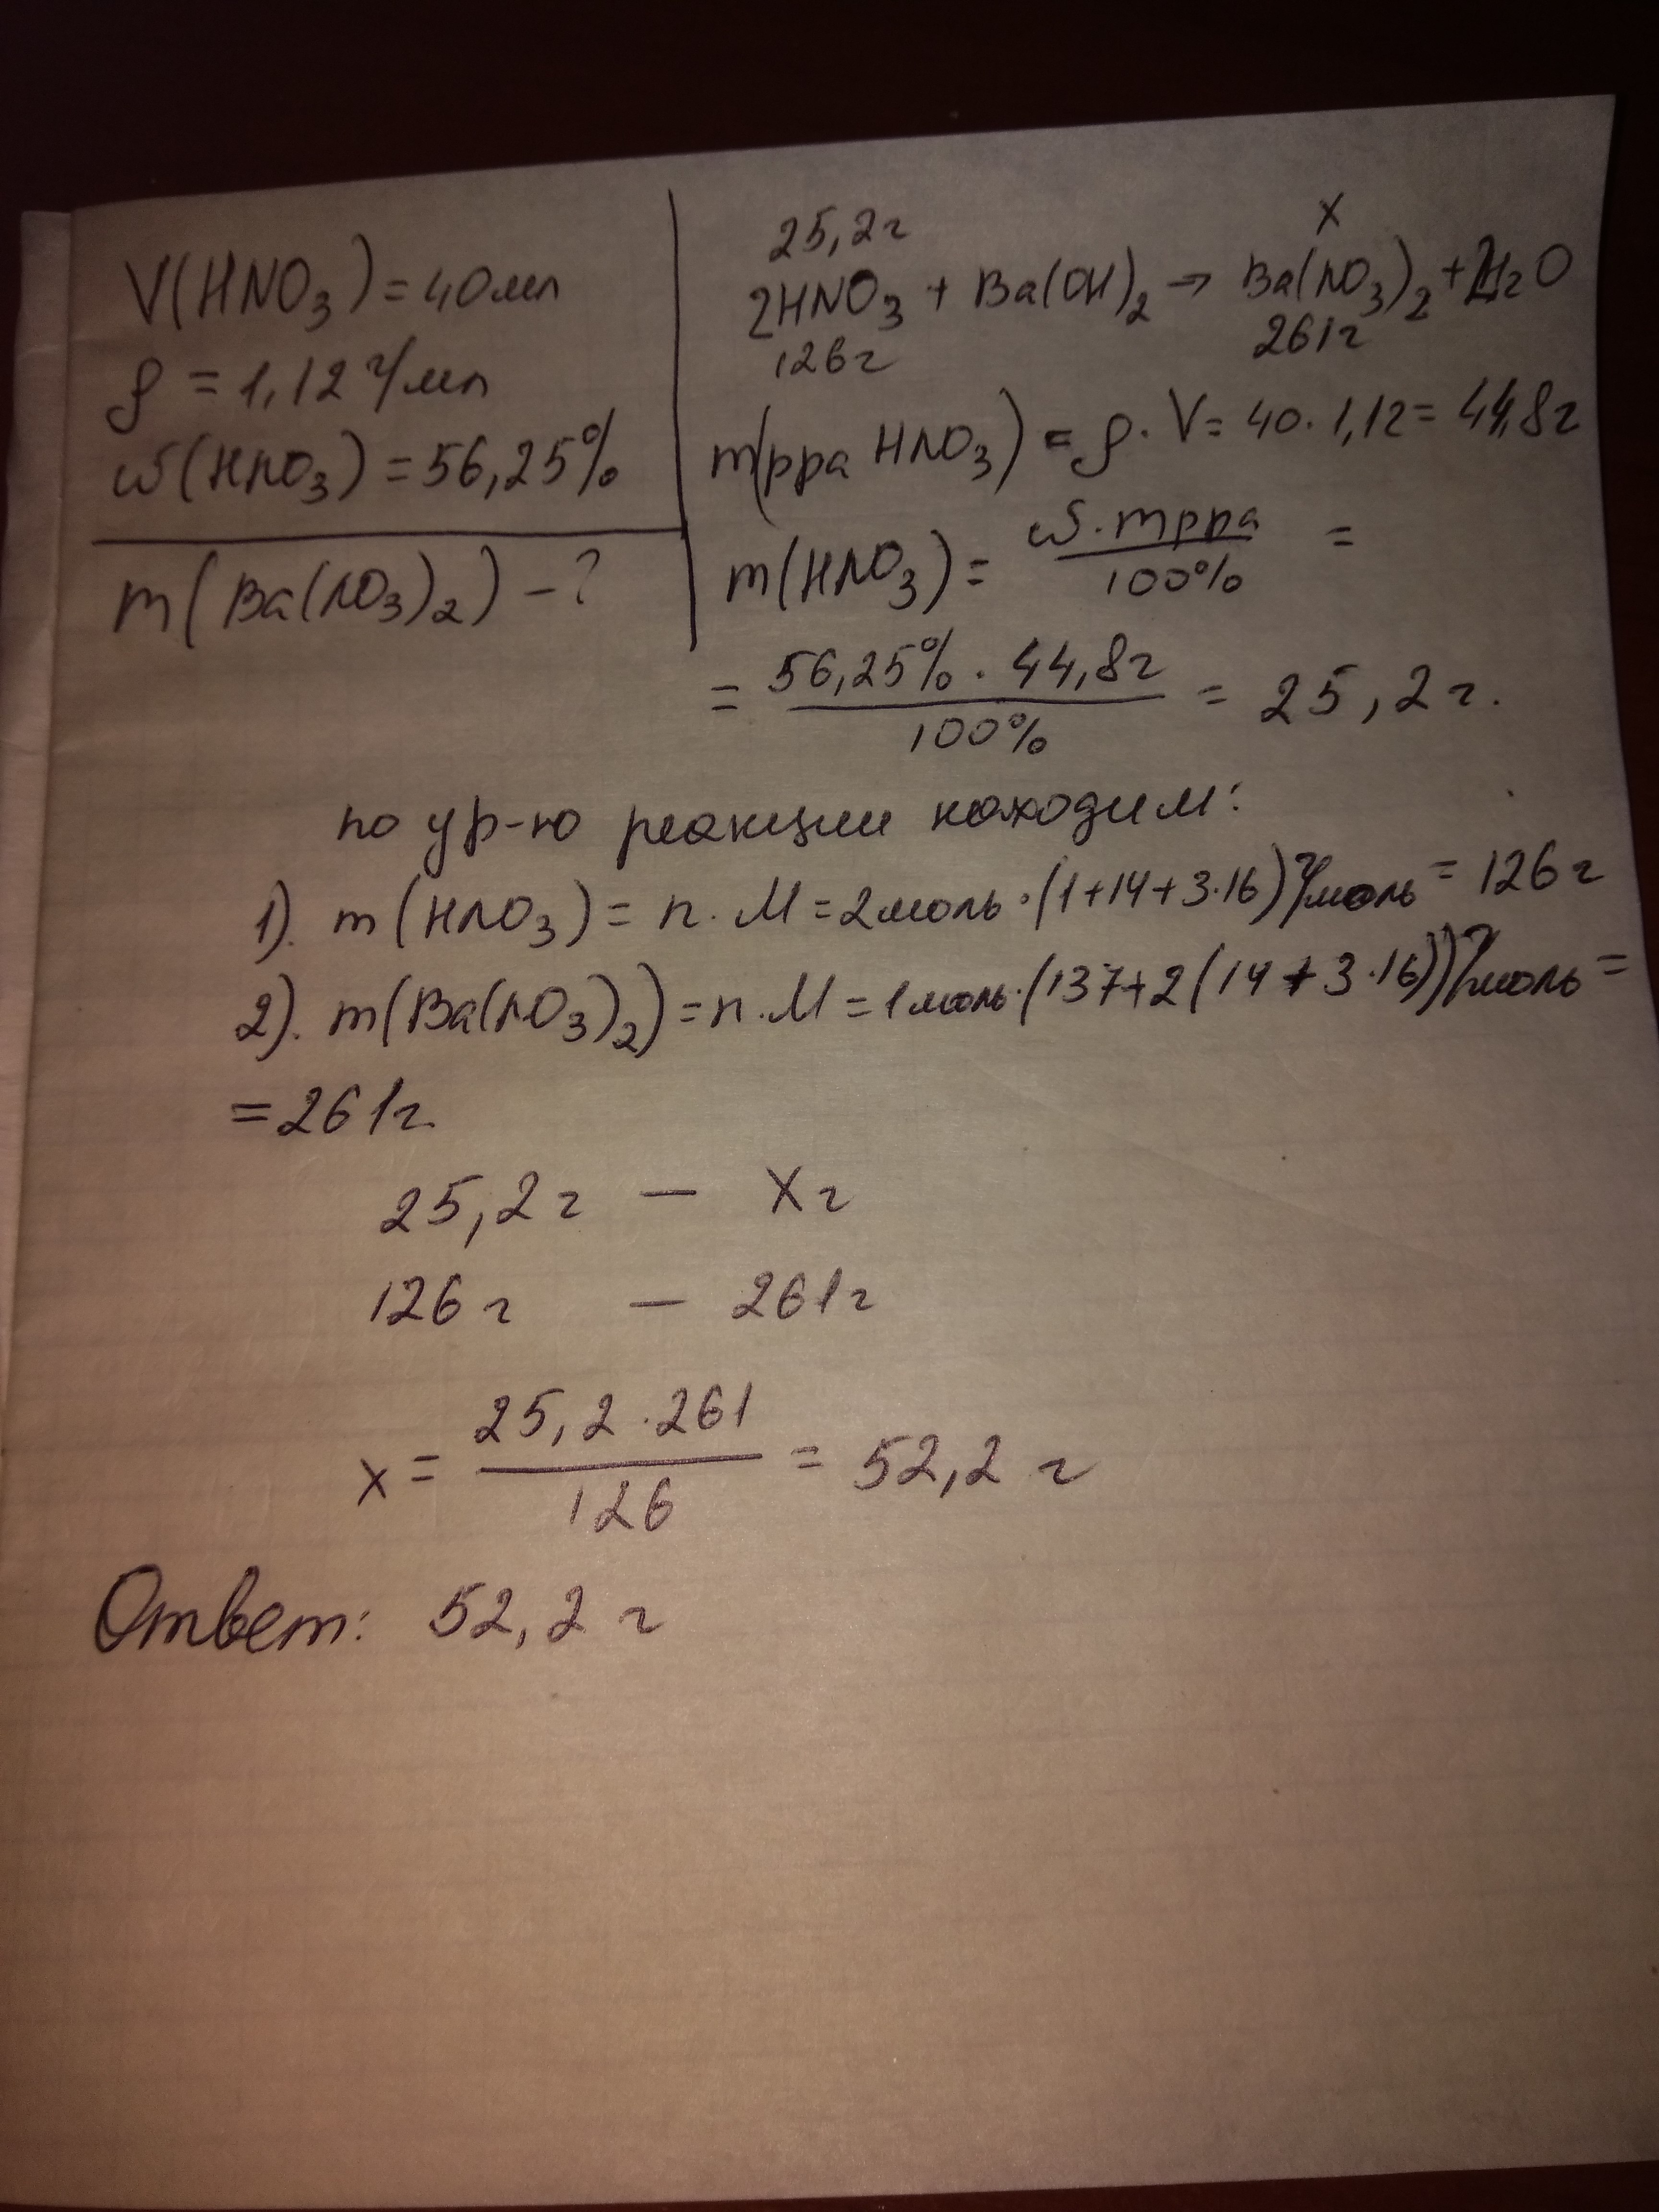 V(HNO₃) = 40мл
ρ = 1,12 г/мл
ω(HNO₃) = 56,25%
m(Ba(NO₃)₂) - ?
25,2г x
2HNO₃ + Ba(OH)₂ → Ba(NO₃)₂ + 2H₂O
126г 261г
m(рра HNO₃) = ρ · V = 40 · 1,12 = 44,8г
m(HNO₃) = ω · mрра / 100% =
= 56,25% · 44,8г / 100% = 25,2г.
по ур-ю реакции находим:
1). m(HNO₃) = n · M = 2моль · (1+14+3·16) г/моль = 126г
2). m(Ba(NO₃)₂) = n · M = 1моль · (137+2(14+3·16)) г/моль =
= 261г.
25,2г — xг
126г — 261г
x = 25,2 · 261 / 126 = 52,2 г
Ответ: 52,2 г